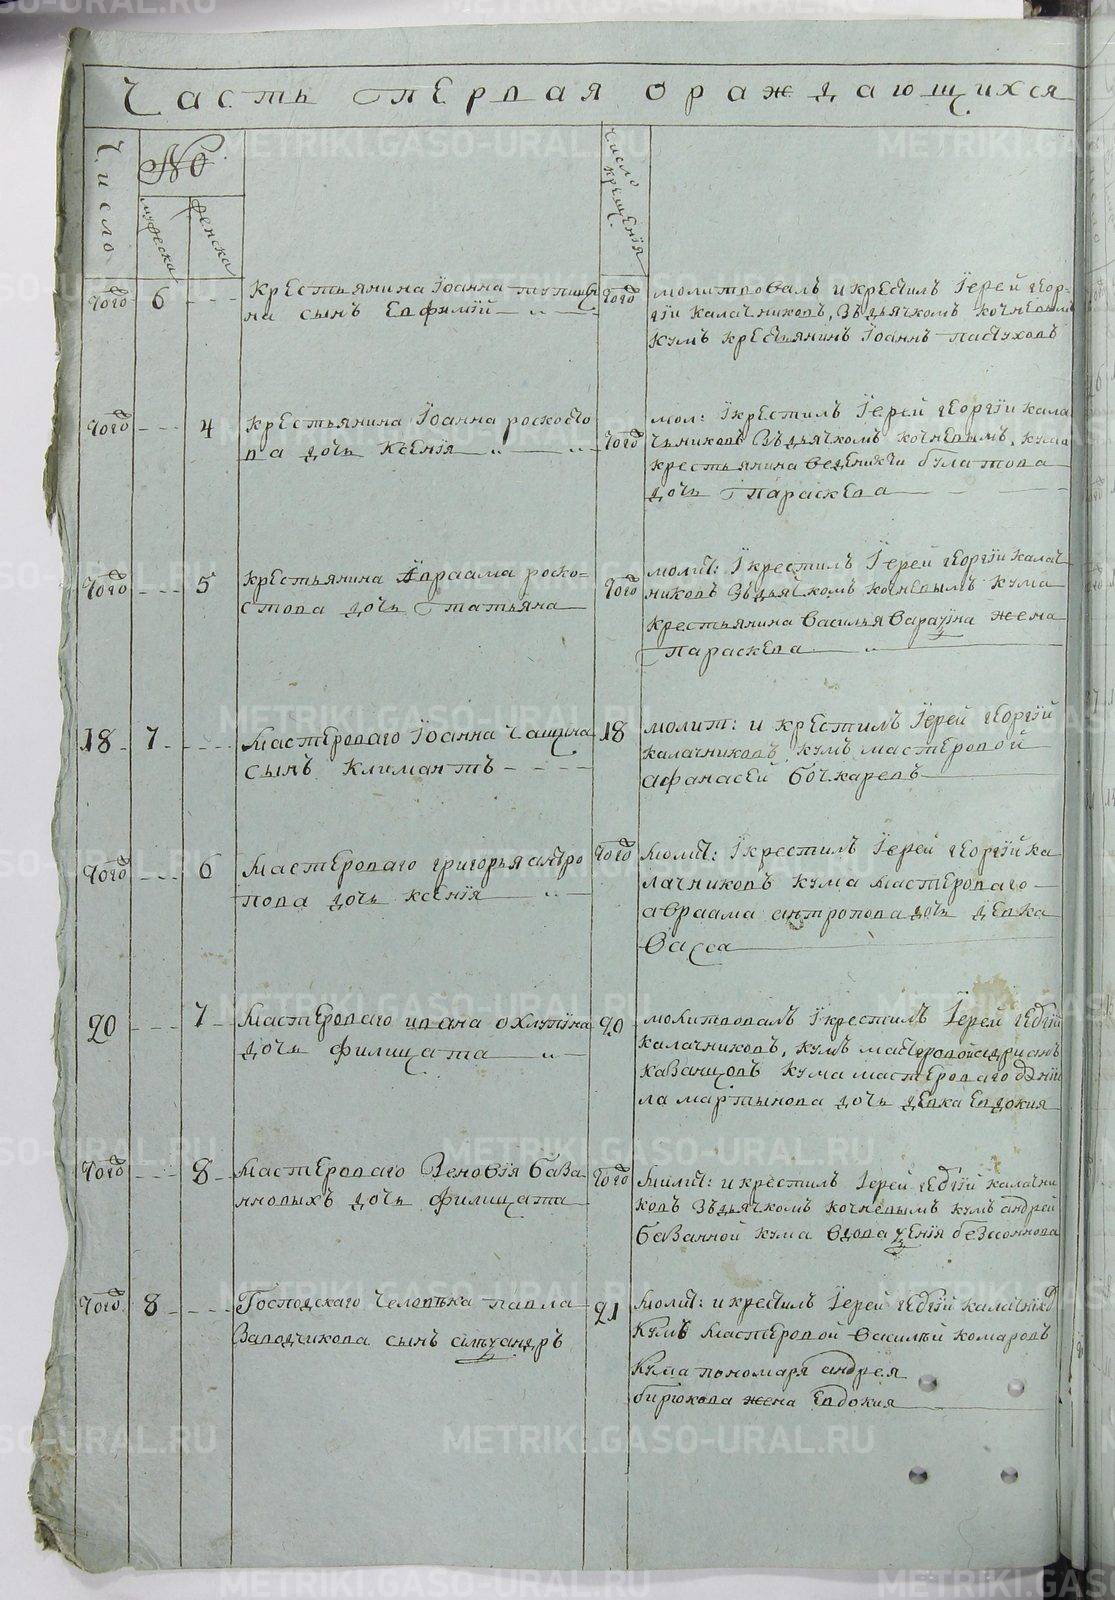 Часть первая о раждающихся
Число
№
мужеска
женска
число крещенїя
того 6
Крестьянина Їоанна
на сынъ Евфимїй
того
молитвовалъ и крестилъ Їерей геор-
гїи калачниковъ, Въ дьячкомъ кочневымъ
кумъ крестьянинъ Їоаннъ пастуховъ
того 4
крестьянина Їоанна роскосто
ва дочь Ксенїя
того
мол: Їкрестилъ Їерей георгїи кала
чьниковъ Въ дьячкомъ кочневымъ, кума
крестьянина булатова
дочь Параскева
того 5
крестьянина Авраама роско=
стова дочь Татьяна
того
молит: Їкрестилъ Їерей георгїи калач
никовъ Въ дьячкомъ кочневымъ кума
крестьянина василья жена
Параскева
18 7
Мастероваго Їоанна Чащина
сынъ Климантъ
18
молит: и крестилъ Їерей георгїй
калачниковъ кумъ мастеровой
афанасей бочкаревъ
того 6
Мастероваго григорья антро
пова дочь ксенїя
того
молит: Їкрестилъ Їерей георгїй ка
лачниковъ кума мастероваго
авраама антропова дочь девка
васса
20 7
Мастероваго ивана охлупина
дочь филицата
20
молитвовалъ Їкрестилъ Їерей геѡргїи
калачниковъ, кумъ мастеровой адрианъ
кума мастероваго данїи
ла мартынова дочь девка евдокия
того 8
Мастероваго Зеновїя база
нновыхъ дочь филицата
того
молит: и крестилъ Їерей геѡргїй калачни
ковъ Въ дьячкомъ кочневымъ кумъ андрей
базанной кума вдова
того 8
Господскаго человѣка павла
Заводчикова сынъ
21
молит: и крестилъ Їерей геѡргїй калачников
кумъ мастеровой василѣй комаровъ
кума пономаря андрея
бирюкова жена евдокия
METRIKI.GASO-URAL.RU